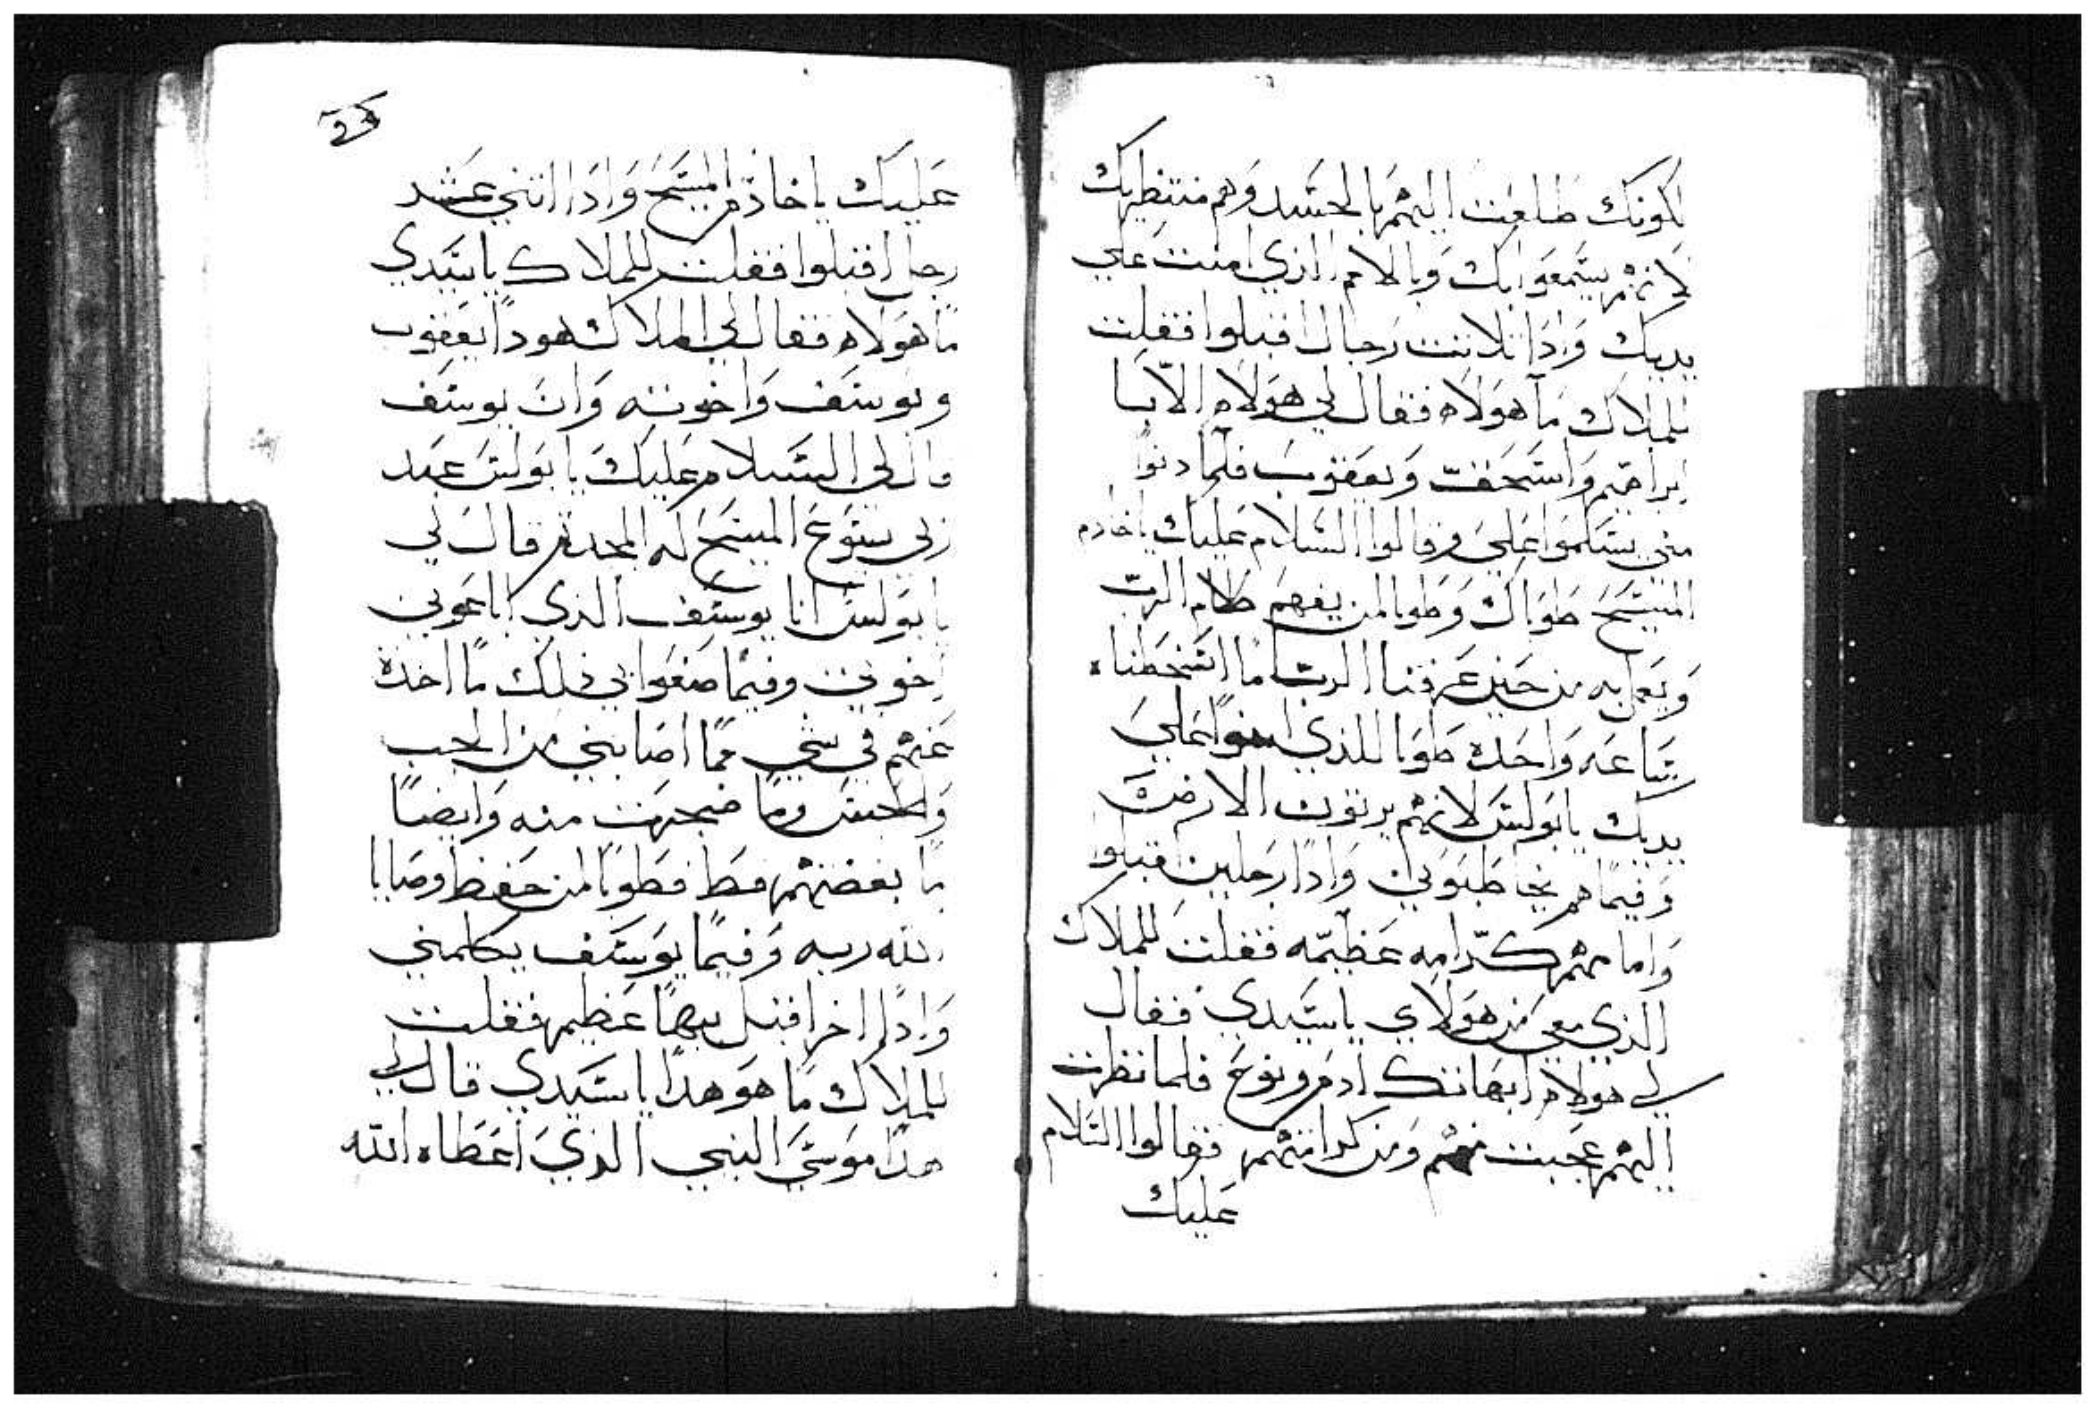 لكونك طلعت اليهم بالجسد وهم منتظرينك
لانهم يسمعوا بك وبالامم الذي امنت علي
يديك وادا تلاتت رجال اقبلوا فقلت
للملاك ما هولاه فقال لي هولاء الابا
ابراهيم واسحق ويعقوب فلما دنوا
مني يسلموا علي وقالوا السلام عليك يا خادم
المسيح طوباك وطوبا لمن يفهم كلام الرب
ويعمل به من حين عرفنا الرب ما اسخطناه
ساعه واحده طوبا للذي امنوا علي
يديك يا بولس لانهم يرتون الارض
وفيما هم يخاطبوني وادا رجلين اقبلوا
واما مهم كرامه عظيمه فقلت للملاك
الذي معي من هولاي يا سيدي فقال
لي هولاء ابهاتك ادم ونوح فلما نظرت
اليهم عجبت منهم ومن كرامتهم فقالوا السلام
عليك
عليك يا خادم المسيح وادا اتني عشر
رجل اقبلوا فقلت للملاك يا سيدي
ما هولاه فقال لي الملاك هودا يعقوب
ويوسف واخوته وان يوسف
قال لي السلام عليك يا بولس عبد
ربي يسوع المسيح له المجد قال لي
يا بولس انا يوسف الذي اباعوني
اخوتي وفيما صنعوا بي ذلك ما اخده
عنهم في شي مما اصابني من الجب
والحبس وما ضجرت منه وايضا
ما بغضتهم قط فطوبا لمن حفظ وصايا
الله ربه وفيما يوسف يكلمني
وادا اخر اقبل ببها عظيم فقلت
للملاك ما هو هدا يا سيدي قال لي
هدا موسي النبي الذي اعطاه الله